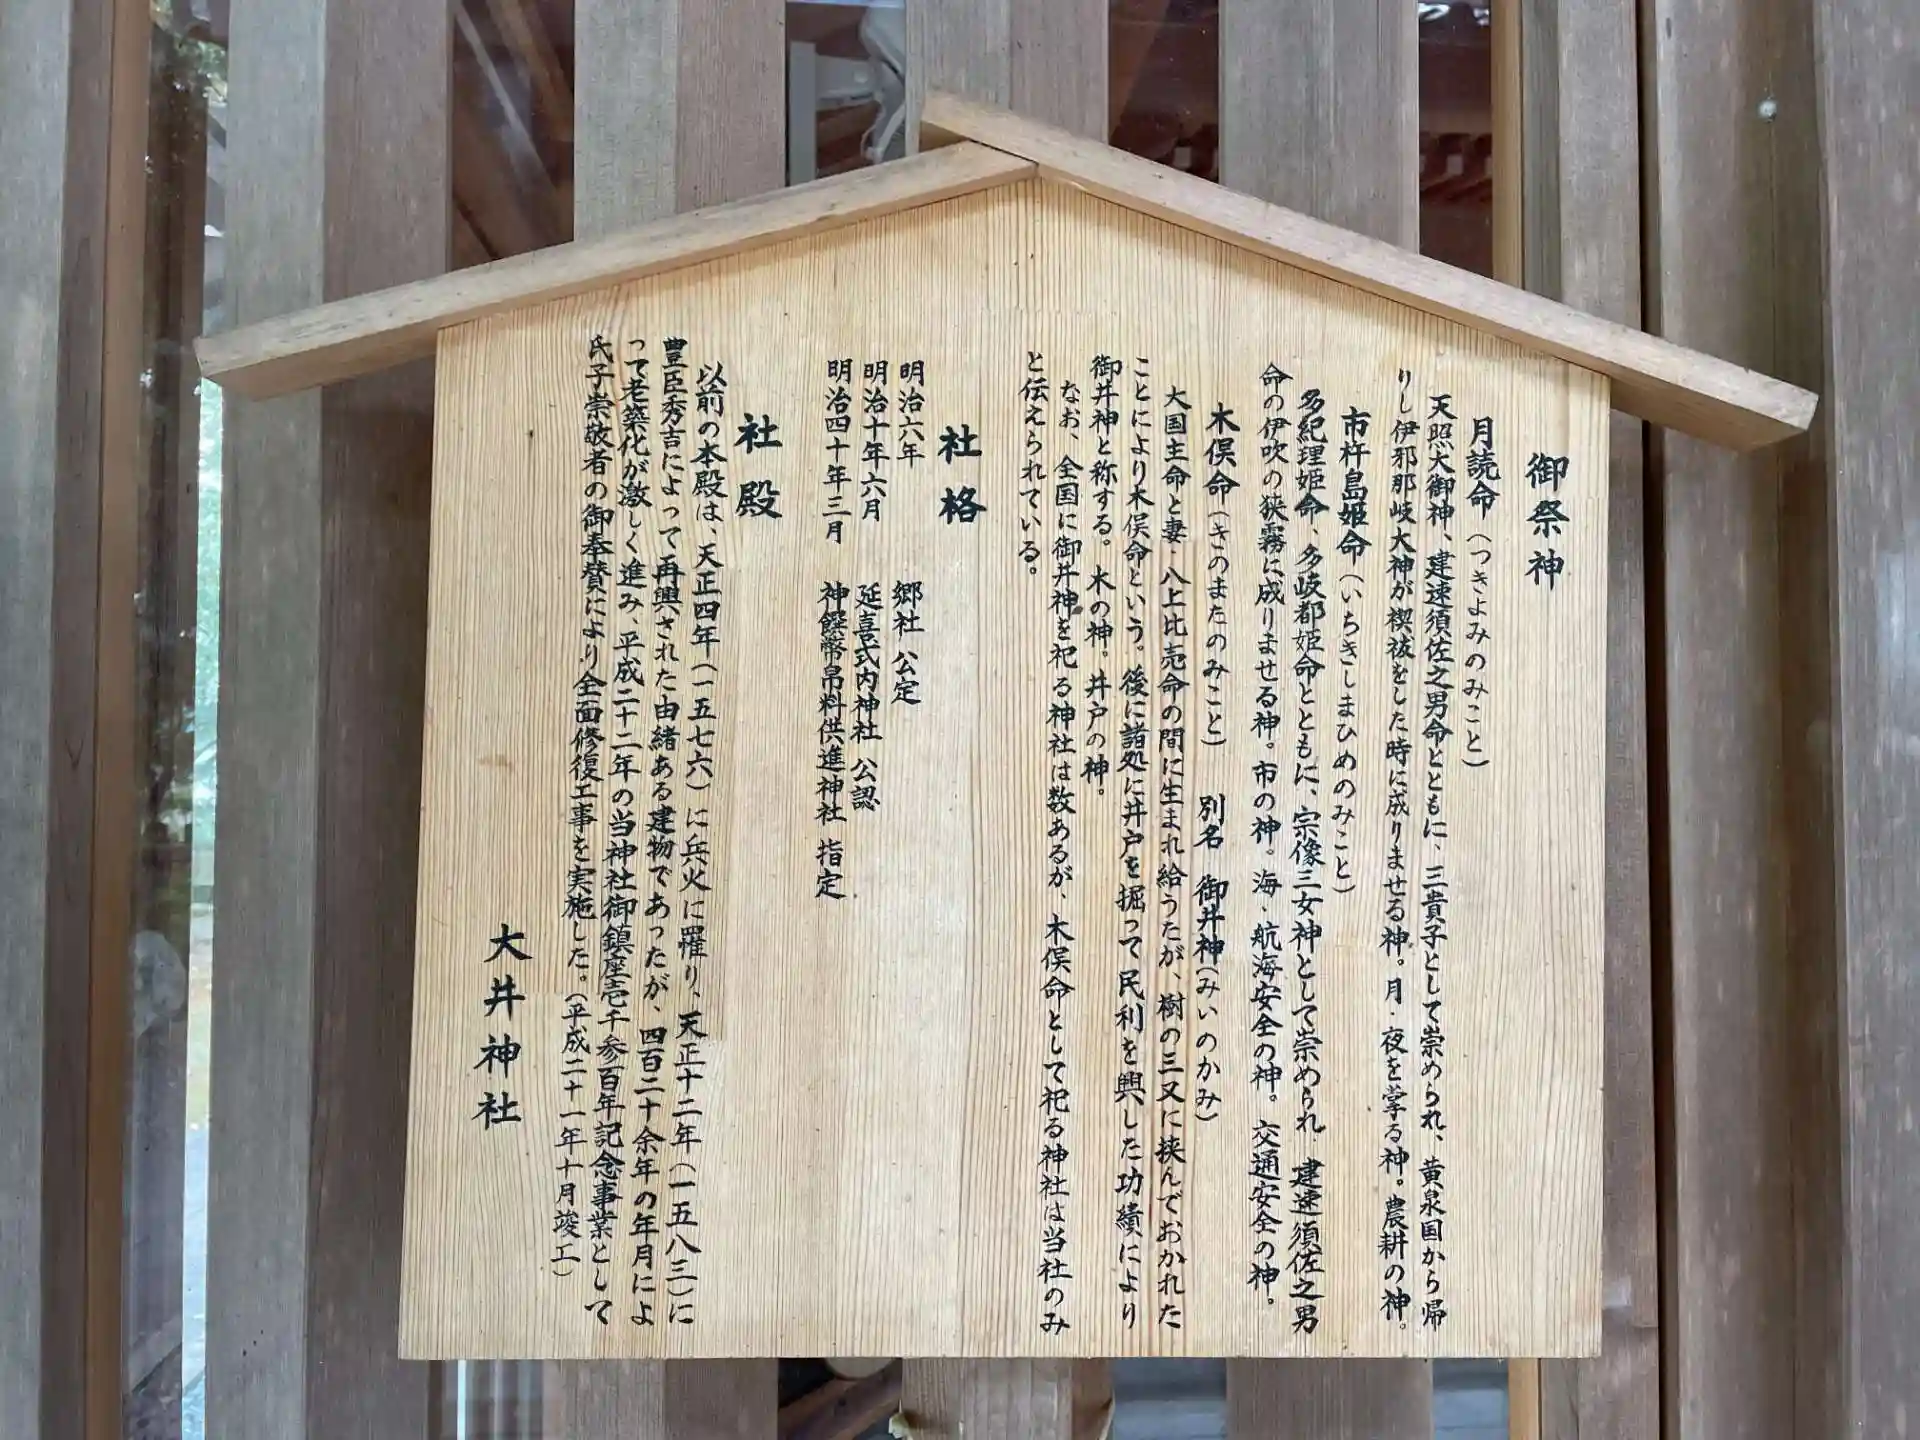 御祭神
月読命(つきよみのみこと)
天照大御神、建速須佐之男命とともに、三貴子として崇められ、黄泉国から帰
りし伊邪那岐大神が禊祓をした時に成りませる神。月・夜を掌る神。農耕の神。
市杵島姫命(いちきしまひめのみこと)
多紀理姫命、多岐都姫命とともに、宗像三女神として崇められ、建速須佐之男
命の伊吹の狭霧に成りませる神。市の神。海、航海安全の神。交通安全の神。
木俣命(きのまたのみこと) 別名 御井神(みいのかみ)
大国主命と妻・八上比売命の間に生まれ給うたが、樹の三又に挟んでおかれた
ことにより木俣命という。後に諸処に井戸を掘って民利を興した功績により
御井神と称する。木の神。井戸の神。
なお、全国に御井神を祀る神社は数あるが、木俣命として祀る神社は当社のみ
と伝えられている。
社格
明治六年 郷社 公定
明治十年六月 延喜式内神社 公認
明治四十年三月 神饌幣帛料供進神社 指定
社殿
以前の本殿は、天正四年(一五七六)に兵火に罹り、天正十二年(一五八三)に
豊臣秀吉によって再興された由緒ある建物であったが、四百二十余年の年月によ
って老築化が激しく進み、平成二十二年の当神社御鎮座壱千参百年記念事業として
氏子崇敬者の御奉賛により全面修復工事を実施した。(平成二十一年十月竣工)
大井神社